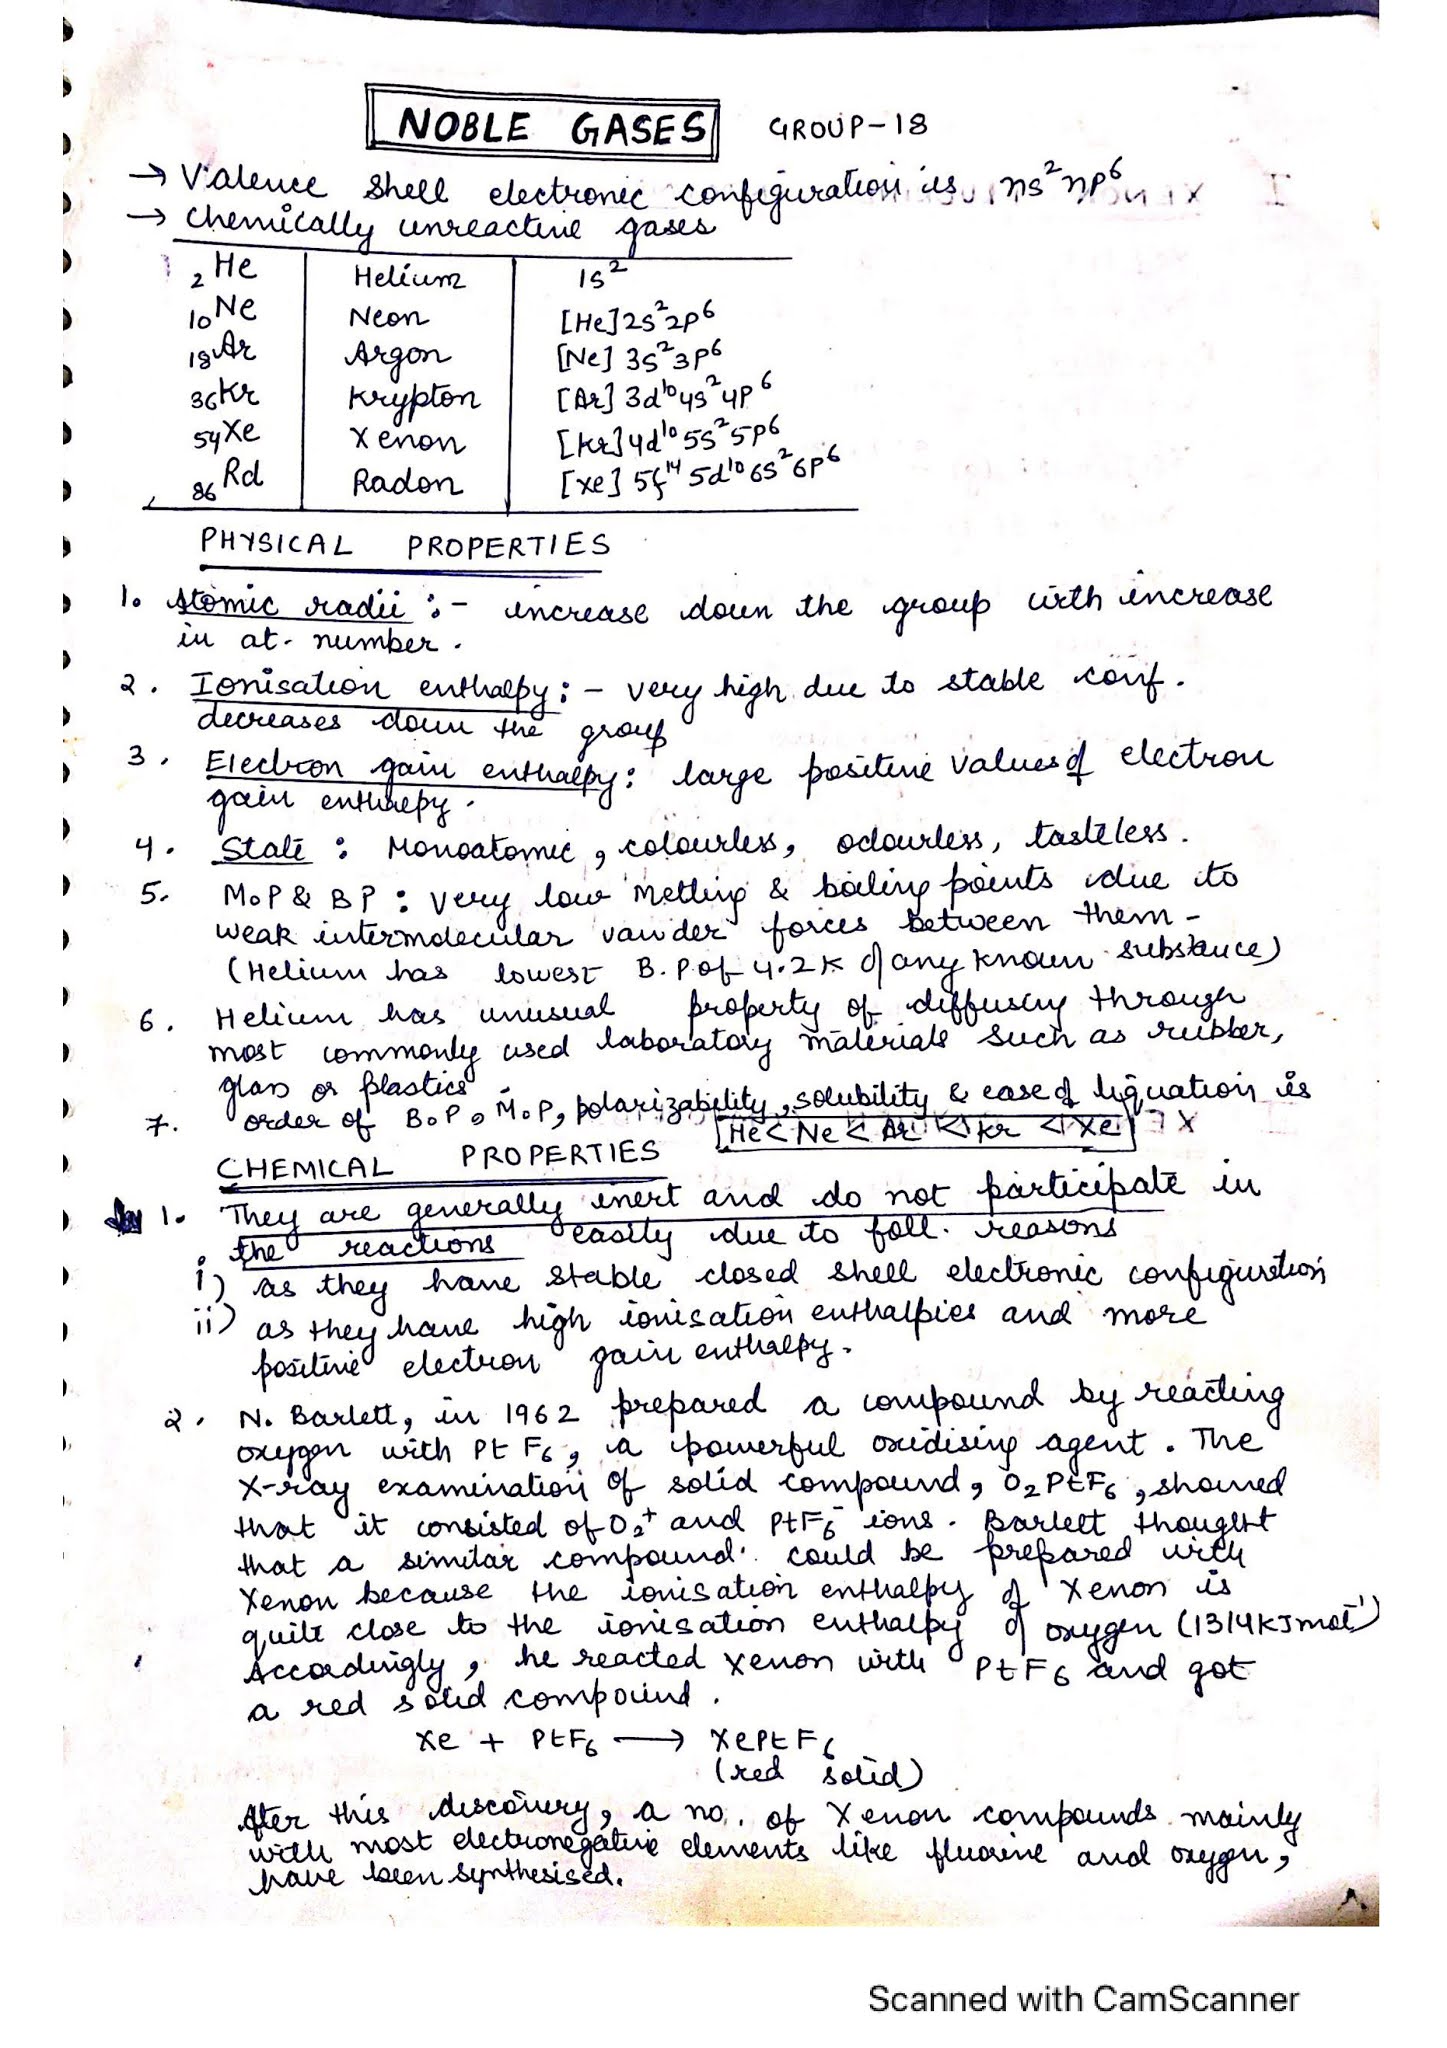 NOBLE GASES GROUP-18
→ Valence shell electronic configuration is ns²np⁶
→ Chemically unreactive gases
₂He Helium 1s²
₁₀Ne Neon [He]2s²2p⁶
₁₈Ar Argon [Ne] 3s²3p⁶
₃₆Kr Krypton [Ar] 3d¹⁰4s²4p⁶
₅₄Xe Xenon [Kr]4d¹⁰5s²5p⁶
₈₆Rd Radon [Xe] 5f¹⁴5d¹⁰6s²6p⁶
PHYSICAL PROPERTIES
1. Atomic radii :- increase down the group with increase
in at. number.
2. Ionisation enthalpy :- very high due to stable conf.
decreases down the group
3. Electron gain enthalpy: large positive values of electron
gain enthalpy.
4. State : Monoatomic, colourless, odourless, tasteless.
5. M.P & BP : very low melting & boiling points due to
weak intermolecular vander forces between them -
(Helium has lowest B.P of 4.2K of any known substance)
6. Helium has unusual property of diffusing through
most commonly used laboratory materials such as rubber,
glass or plastics
7. order of B.P, M.P, polarizability, solubility & ease of liquation is
He < Ne < Ar < Kr < Xe
CHEMICAL PROPERTIES
1. They are generally inert and do not participate in
the reactions easily due to foll. reasons
i) as they have stable closed shell electronic configuration
ii) as they have high ionisation enthalpies and more
positive electron gain enthalpy.
2. N. Barlett, in 1962 prepared a compound by reacting
oxygen with PtF₆, a powerful oxidising agent. The
X-ray examination of solid compound, O₂PtF₆, showed
that it consisted of O₂⁺ and PtF₆⁻ ions. Barlett thought
that a similar compound could be prepared with
Xenon because the ionisation enthalpy of Xenon is
quite close to the ionisation enthalpy of oxygen (1314KJmol⁻¹)
Accordingly, he reacted xenon with PtF₆ and got
a red solid compound.
Xe + PtF₆ → XePtF₆
(red solid)
After this discovery, a no. of Xenon compounds mainly
with most electronegative elements like fluorine and oxygen,
have been synthesised.
Scanned with CamScanner